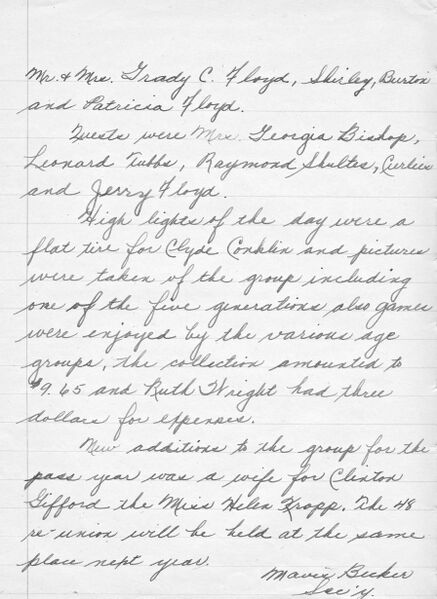 Mr. & Mrs. Grady C. Floyd, Shirley, Burton
and Patricia Floyd.
Guests were Mrs. Georgia Bishop,
Leonard Tubbs, Raymond Shultes, Curtiss
and Jerry Floyd.
High lights of the day were a
flat tire for Clyde Conklin and pictures
were taken of the group including
one of the five generations also games
were enjoyed by the various age
groups, the collection amounted to
$9.65 and Ruth Wright had three
dollars for expenses.
New additions to the group for the
pass year was a wife for Clinton
Gifford the Miss Helen Kropp. The 48
re-union will be held at the same
place next year.
Mavis Becker
Sec'y.